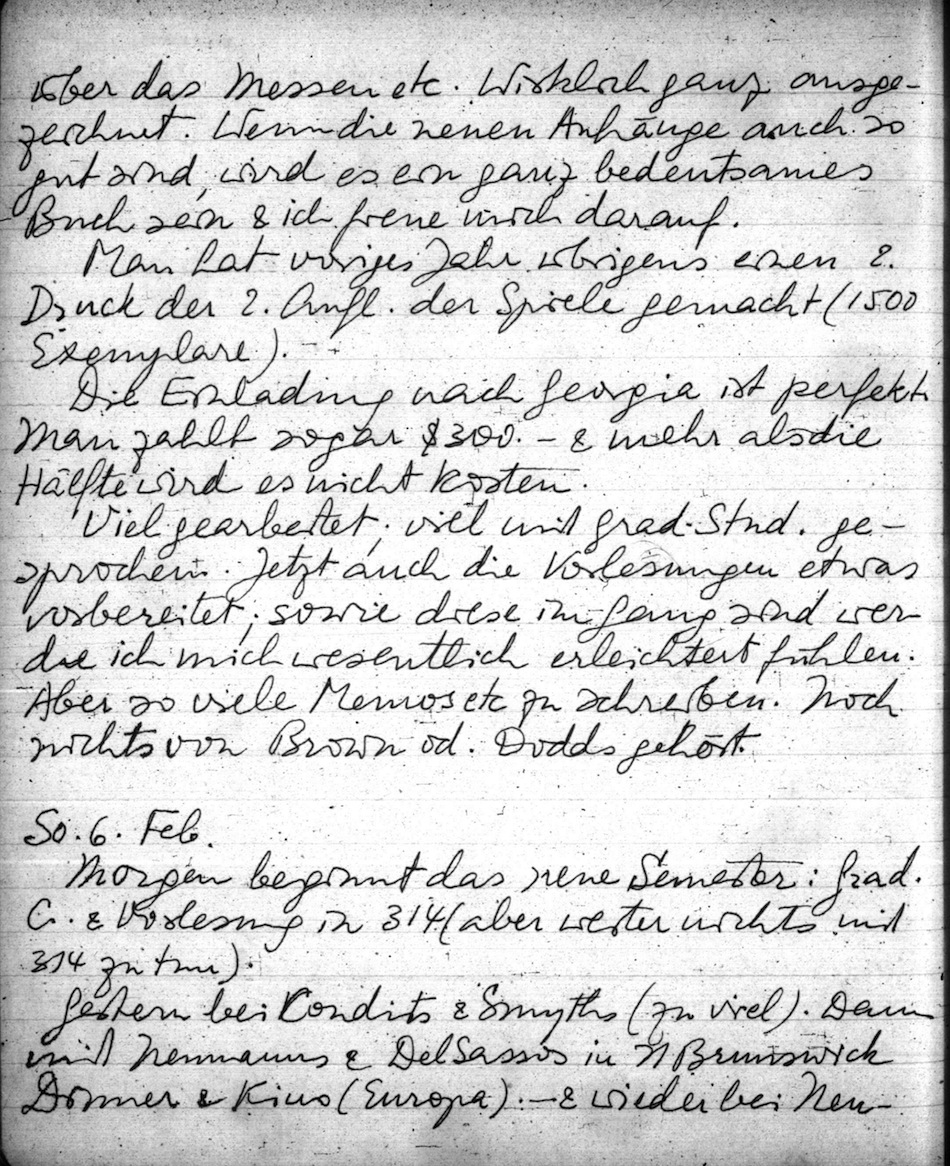 über das Messen etc. Wirklich ganz ausge-
zeichnet. Wenn die neuen Anhänge auch so
gut sind, wird es ein ganz bedeutsames
Buch sein & ich freue mich darauf.
Man hat voriges Jahr übrigens einen 2.
Druck der 2. Aufl. der Spiele gemacht (1500
Exemplare). –
Die Einladung nach Georgia ist perfekt.
Man zahlt sogar $300.– & mehr als die
Hälfte wird es nicht kosten.
Viel gearbeitet, viel mit Grad. Stud. ge-
sprochen. Jetzt auch die Vorlesungen etwas
vorbereitet; sowie diese im Gang sind wer-
de ich mich wesentlich erleichtert fühlen.
Aber so viele Memos etc zu schreiben. Noch
nichts von Brown od. Dodds gehört.
So. 6. Feb.
Morgen beginnt das neue Semester: Grad.
C. & Vorlesung in 314 (aber weiter nichts mit
314 zu tun).
Gestern bei Condits & Smyths (zu viel). Dann
mit Neumanns & DelSassos in N Brunswick
Dinner & Kino (Europa). – & wieder bei Neu-